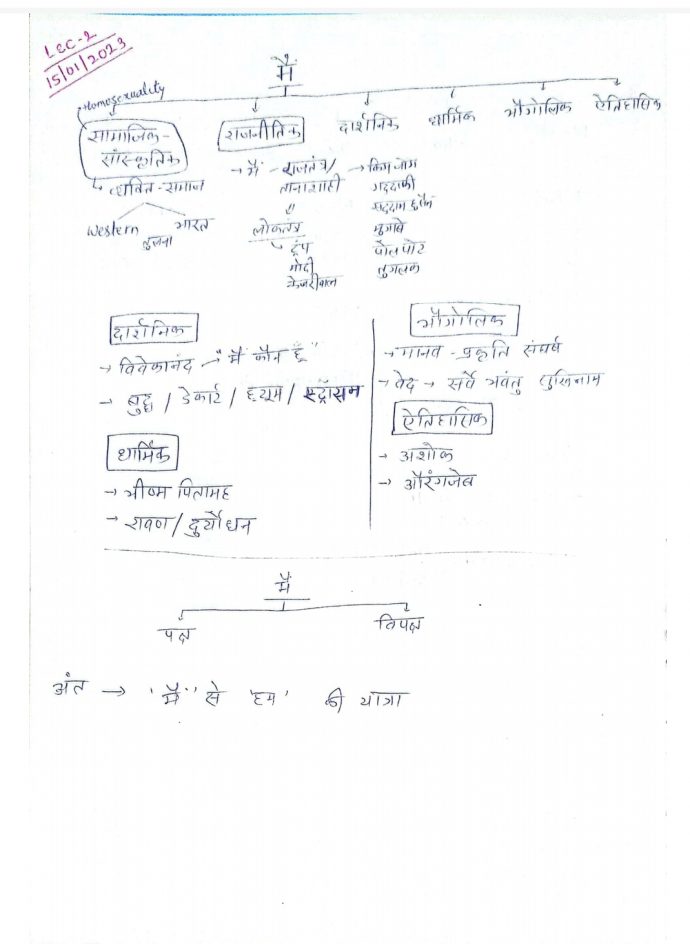 LEC-2
15/01/2023
मैं
Homosexuality
सामाजिक-
सांस्कृतिक
राजनीतिक
दार्शनिक
धार्मिक
भौगोलिक
ऐतिहासिक
↳ व्यक्ति-समाज
Western भारत
तुलना
→ मैं - राजतंत्र/
तानाशाही
लोकतंत्र
↳ ट्रंप
मोदी
केजरीवाल
→ किम जोंग
गद्दाफी
सद्दाम हुसैन
मुगाबे
पोलपोट
तुगलक
दार्शनिक
→ विवेकानंद → "मैं कौन हूँ"
→ बुद्ध / डेकार्ट / ह्यूम / स्ट्रॉसन
धार्मिक
→ भीष्म पितामह
→ रावण / दुर्योधन
भौगोलिक
→ मानव - प्रकृति संघर्ष
→ वेद → सर्वे भवंतु सुखिनाम
ऐतिहासिक
→ अशोक
→ औरंगजेब
मैं
पक्ष विपक्ष
अंत → 'मैं' से 'हम' की यात्रा